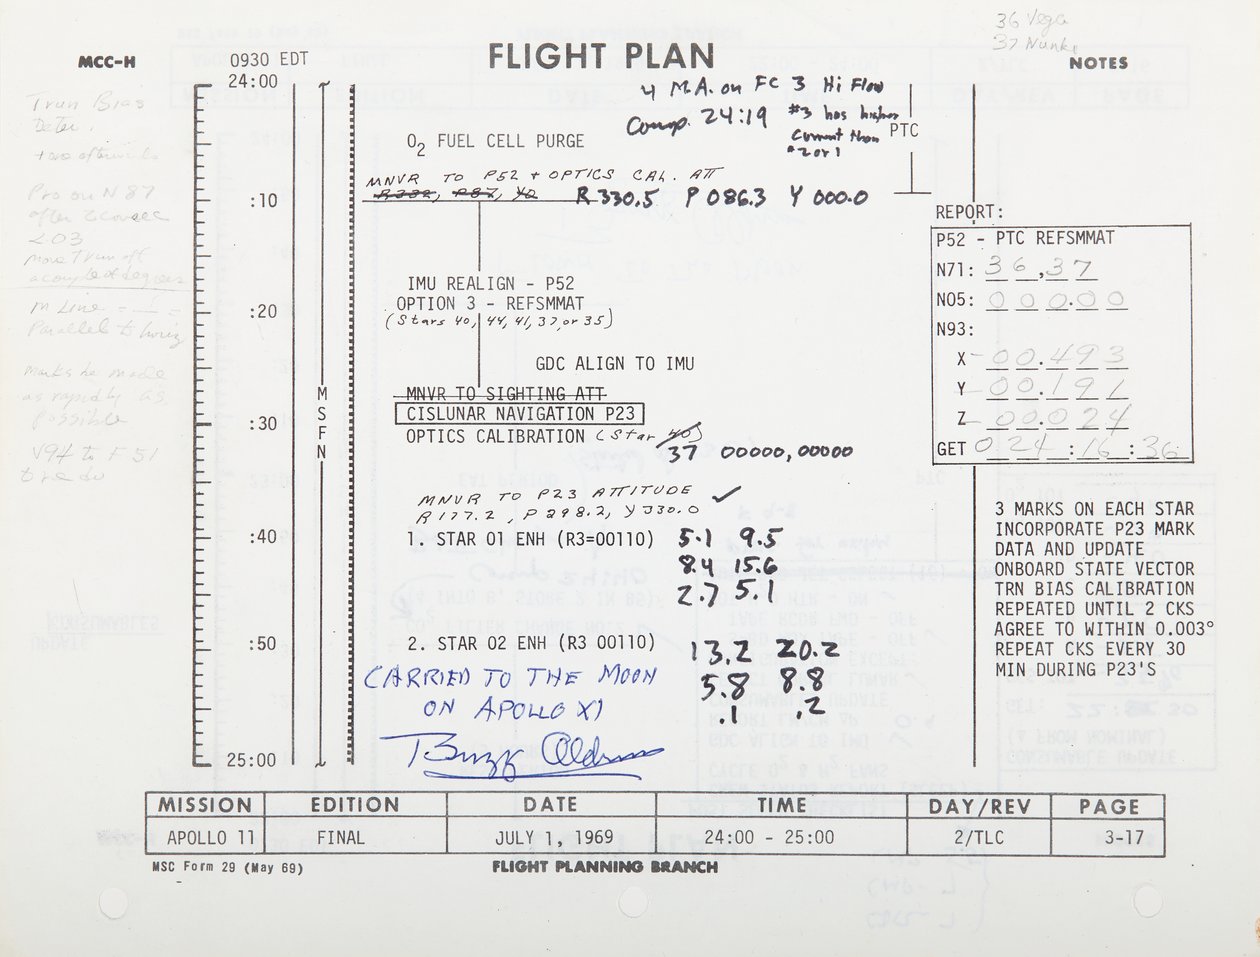 36 Vega
37 Nunki
MCC-H
0930 EDT
FLIGHT PLAN
NOTES
24:00
4 M.A. on FC 3 Hi Flow
Comp. 24:19 #3 has higher
current than
#2 or 1
PTC
Trun Bias
Deter.
O2 FUEL CELL PURGE
MNVR TO P52 + OPTICS CAL. ATT
R330.5 P 086.3 Y 000.0
:10
Pro on N 87
after
203
REPORT:
P52 - PTC REFSMMAT
N71: 36,37
N05: 000.00
N93:
X -00.493
Y -00.191
Z -00.024
GET 024:16:36
IMU REALIGN - P52
OPTION 3 - REFSMMAT
(Stars 40, 44, 41, 37, or 35)
:20
Parallel to horiz
GDC ALIGN TO IMU
Marks be made
as rapidly as
possible
MSFN
MNVR TO SIGHTING ATT
CISLUNAR NAVIGATION P23
:30
OPTICS CALIBRATION (Star 40)
37 00000,00000
V94 to F 51
to redo
MNVR TO P23 ATTITUDE ✓
R177.2, P298.2, Y330.0
:40
1. STAR 01 ENH (R3=00110) 5.1 9.5
8.4 15.6
2.7 5.1
3 MARKS ON EACH STAR
INCORPORATE P23 MARK
DATA AND UPDATE
ONBOARD STATE VECTOR
TRN BIAS CALIBRATION
REPEATED UNTIL 2 CKS
AGREE TO WITHIN 0.003°
REPEAT CKS EVERY 30
MIN DURING P23'S
:50
2. STAR 02 ENH (R3 00110) 13.2 20.2
5.8 8.8
.1 .2
CARRIED TO THE MOON
ON APOLLO XI
Buzz Aldrin
25:00
MISSION EDITION DATE TIME DAY/REV PAGE
APOLLO 11 FINAL JULY 1, 1969 24:00 - 25:00 2/TLC 3-17
MSC Form 29 (May 69)
FLIGHT PLANNING BRANCH